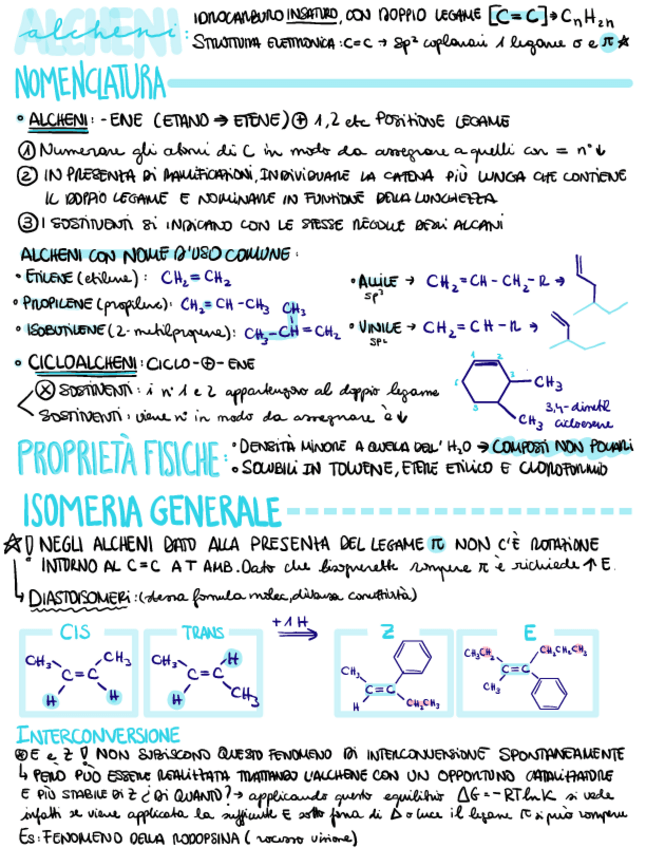 alcheni:
IDROCARBURO INSATURO, CON DOPPIO LEGAME [C=C]→CnH2n
STRUTTURA ELETTRONICA: C=C → sp² coplanari 1 legame σ e π ☆
NOMENCLATURA
• ALCHENI: -ENE (ETANO → ETENE) ⊕ 1,2 etc POSIZIONE LEGAME
① Numerare gli atomi di C in modo da assegnare a quelli con = n° ↓
② IN PRESENZA DI RAMIFICAZIONI, INDIVIDUARE LA CATENA PIÙ LUNGA CHE CONTIENE
IL DOPPIO LEGAME E NOMINARE IN FUNZIONE DELLA LUNGHEZZA
③ I SOSTITUENTI SI INDICANO CON LE STESSE REGOLE DEGLI ALCANI
ALCHENI CON NOME D'USO COMUNE:
• ETILENE (etilene): CH2=CH2
• PROPILENE (propilene): CH2=CH-CH3
CH3
• ISOBUTILENE (2-metilpropene): CH3-CH=CH2
• ALLILE → CH2=CH-CH2-R →
sp³
• VINILE → CH2=CH-R →
sp²
• CICLOALCHENI: CICLO-⊕-ENE
ⓧ SOSTIUENTI: i n° 1 e 2 appartengono al doppio legame
SOSTITUENTI: viene n° in modo da assegnare è ↓
1 2
CH3
CH3
3,4-dimetil
cicloesene
PROPRIETÀ FISICHE:
• DENSITÀ MINORE A QUELLA DELL' H2O → COMPOSTI NON POLARI
• SOLUBILI IN TOLUENE, ETERE ETILICO E CLOROFORMIO
ISOMERIA GENERALE
☆! NEGLI ALCHENI DATO ALLA PRESENZA DEL LEGAME π NON C'È ROTAZIONE
INTORNO AL C=C A T AMB. Dato che rompere π è richiede ↑ E.
↳ DIASTOISOMERI: (stessa formula molec, diversa connettività)
CIS
CH3 CH3
C=C
H H
TRANS
CH3 H
C=C
H CH3
+1H
Z
CH3
C=C
H CH2CH3
E
CH3CH2 CH2CH2CH3
C=C
CH3
INTERCONVERSIONE
⊕ E e Z ! NON SUBISCONO QUESTO FENOMENO DI INTERCONVENSIONE SPONTANEAMENTE
↳ PERÒ PUÒ ESSERE REALIZZATA TRATTANDO L'ALCHENE CON UN OPPORTUNO CATALIZZATORE
E PIÙ STABILE DI Z ¿ DI QUANTO? → applicando questo equilibrio ΔG=-RTlnK si vede
infatti se viene applicata la sufficiente E sotto forma di Δ o luce il legame π si può rompere
Es: FENOMENO DELLA RODOPSINA ( visione)